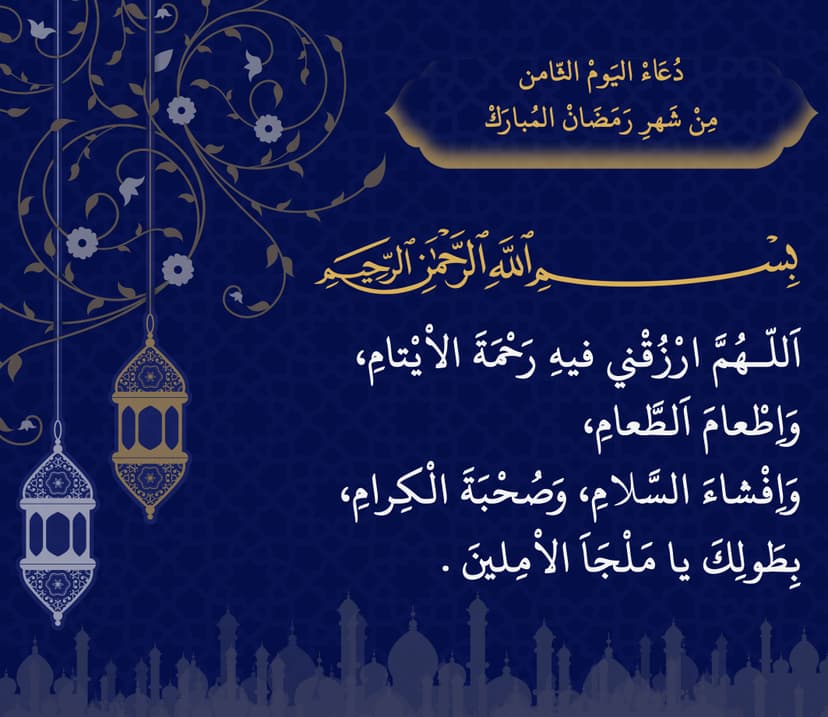 دُعَاءْ اليَومْ الثّامن
مِنْ شَهرِ رَمَضَانْ المُبارَكْ
بِسْمِ اللَّهِ الرَّحْمَٰنِ الرَّحِيمِ
اَللّـهُمَّ ارْزُقْني فيهِ رَحْمَةَ الاْيْتامِ،
وَاِطْعامَ اَلطَّعامِ،
وَاِفْشاءَ السَّلامِ، وَصُحْبَةَ الْكِرامِ،
بِطَولِكَ يا مَلْجَاَ الاْمِلينَ .